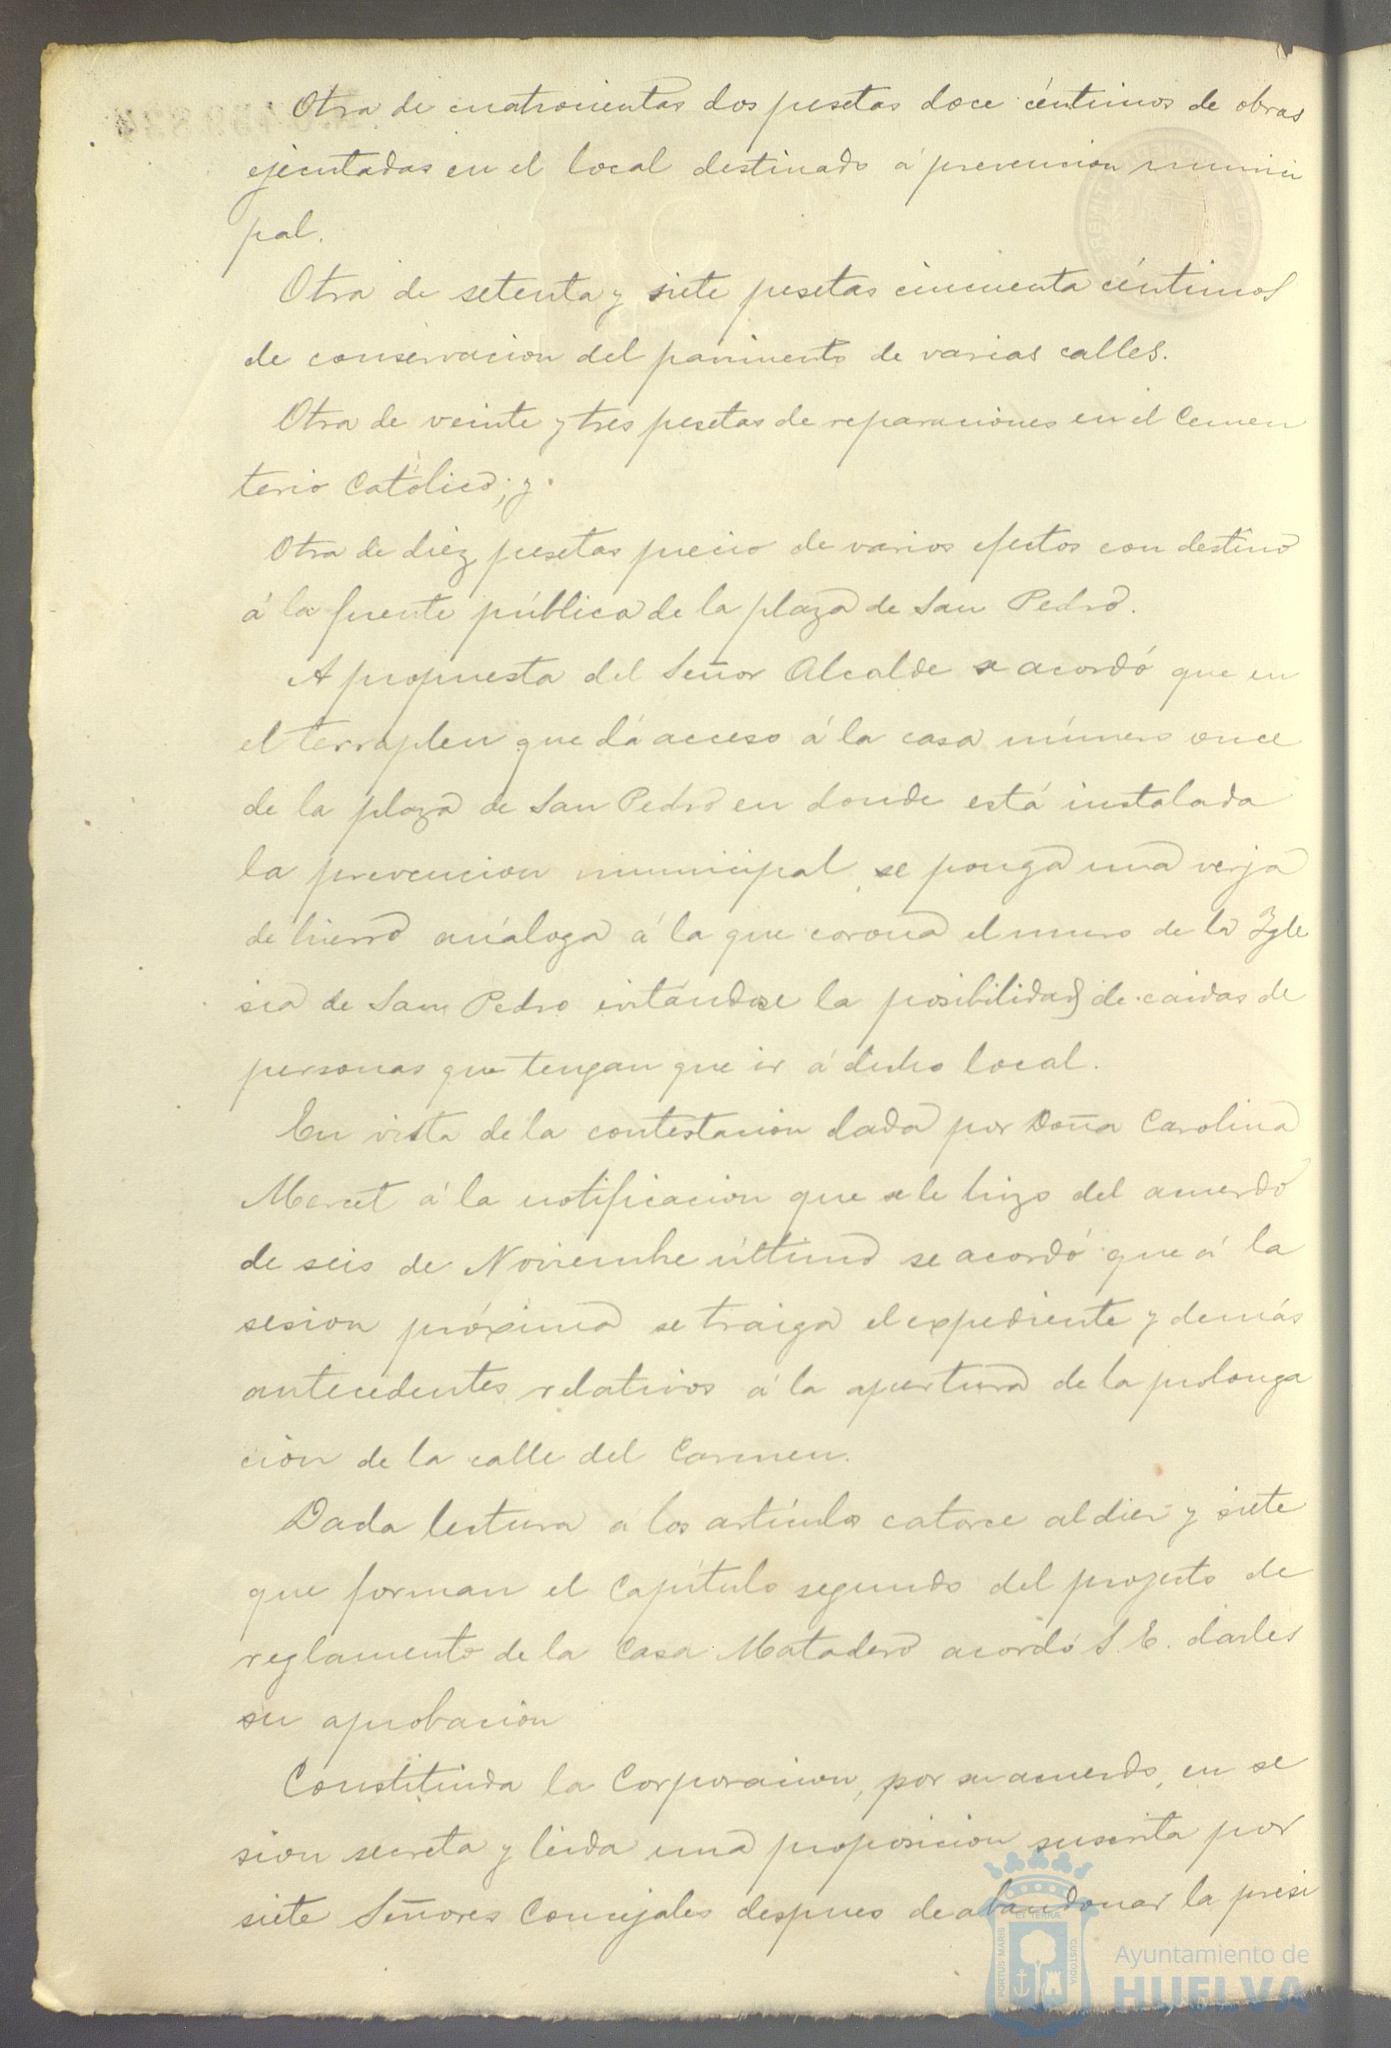 Otra de cuatrocientas dos pesetas doce céntimos de obras
ejecutadas en el local destinado á prevencion munici
pal.
Otra de setenta y siete pesetas cincuenta céntimos
de conservacion del pavimento de varias calles.
Otra de veinte y tres pesetas de reparaciones en el Cemen
terio Católico; y
Otra de diez pesetas precio de varios efectos con destino
á la fuente pública de la plaza de San Pedro.
A propuesta del Señor Alcalde se acordó que en
el terraplen que dá acceso á la casa número once
de la plaza de San Pedro en donde está instalada
la prevencion municipal, se ponga una verja
de hierro análoga á la que corona el muro de la Igle
sia de San Pedro evitándose la posibilidad de caidas de
personas que tengan que ir á dicho local.
En vista de la contestacion dada por Doña Carolina
Marcet á la notificacion que se le hizo del acuerdo
de seis de Noviembre último se acordó que á la
sesion próxima se traiga el expediente y demás
antecedentes relativos á la apertura de la prolonga
cion de la calle del Carmen.
Dada lectura á los artículos catorce al diez y siete
que forman el Capítulo segundo del proyecto de
reglamento de la Casa Matadero acordó S. E. darles
su aprobacion
Constituida la Corporacion, por su acuerdo, en se
sion secreta y leida una proposicion suscrita por
siete Señores Concejales despues de abandonar la presi
PORTUS MARIS
ET TERRÆ
CUSTODIA
Ayuntamiento de
HUELVA